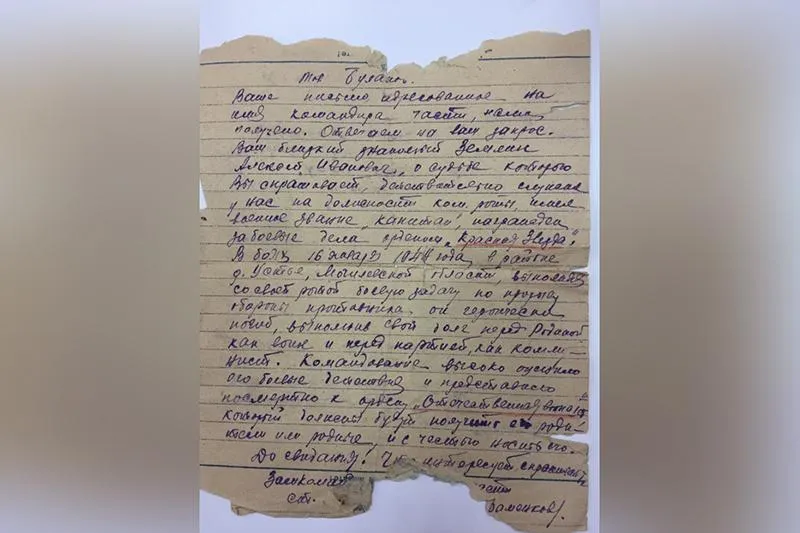 Тов Булань.
Ваше письмо, адресованное на
имя командира части, нами
получено. Отвечаем на ваш запрос.
Ваш близкий знакомый Землян
Алексей Иванович, о судьбе которого
Вы спрашиваете, действительно служил
у нас на должности ком. роты, имел
военное звание "капитан", награжден
за боевые дела орденом "Красная Звезда".
В боях 16 января 1944 года в районе
д. Устье, Могилевской области, выполняя
со своей ротой боевую задачу по прорыву
обороны противника, он героически
погиб, выполнив свой долг перед Родиной
как воин и перед партией, как комму-
нист. Командование высоко оценило
его боевые действия и представило
посмертно к ордену "Отечественная война
который должны будут получить его роди-
тели или родные, и с честью носить его.
До свидания! Что интересует спрашивайте
Замкоман части
ст. Баменков/.